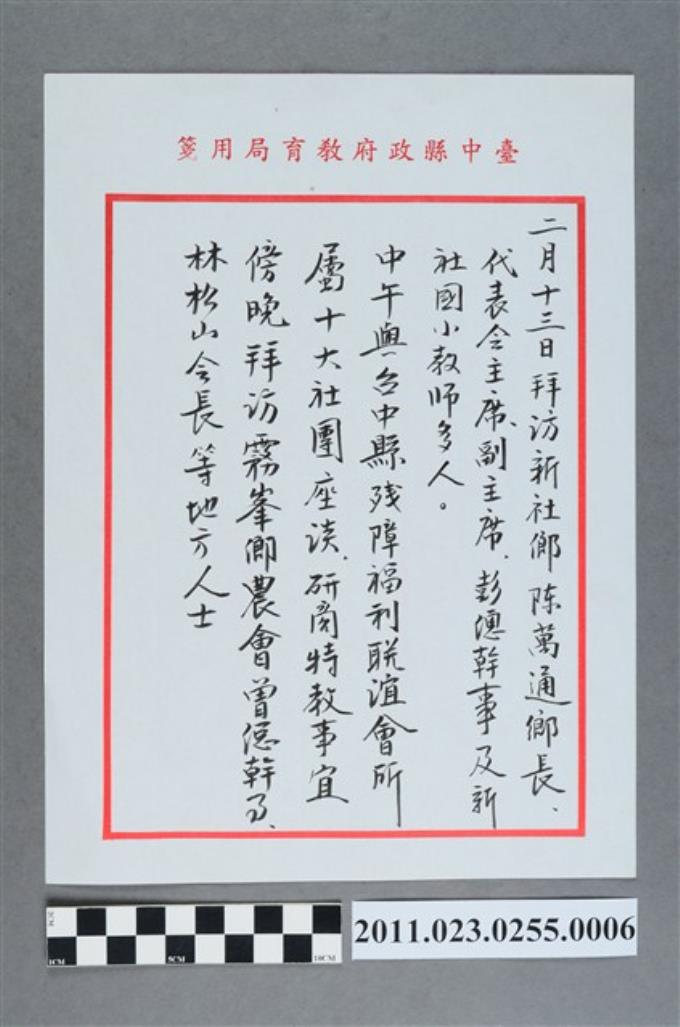 臺中縣政府教育局用箋
二月十三日拜访新社鄉陈萬通鄉長、
代表会主席、副主席、彭總幹事及新
社國小教师多人。
中午與台中縣残障福利联谊會所
屬十大社團座谈、研商特教事宜
傍晚拜访霧峯鄉農會曾總幹事、
林松山会長等地方人士
2011.023.0255.0006
1CM
5CM
10CM